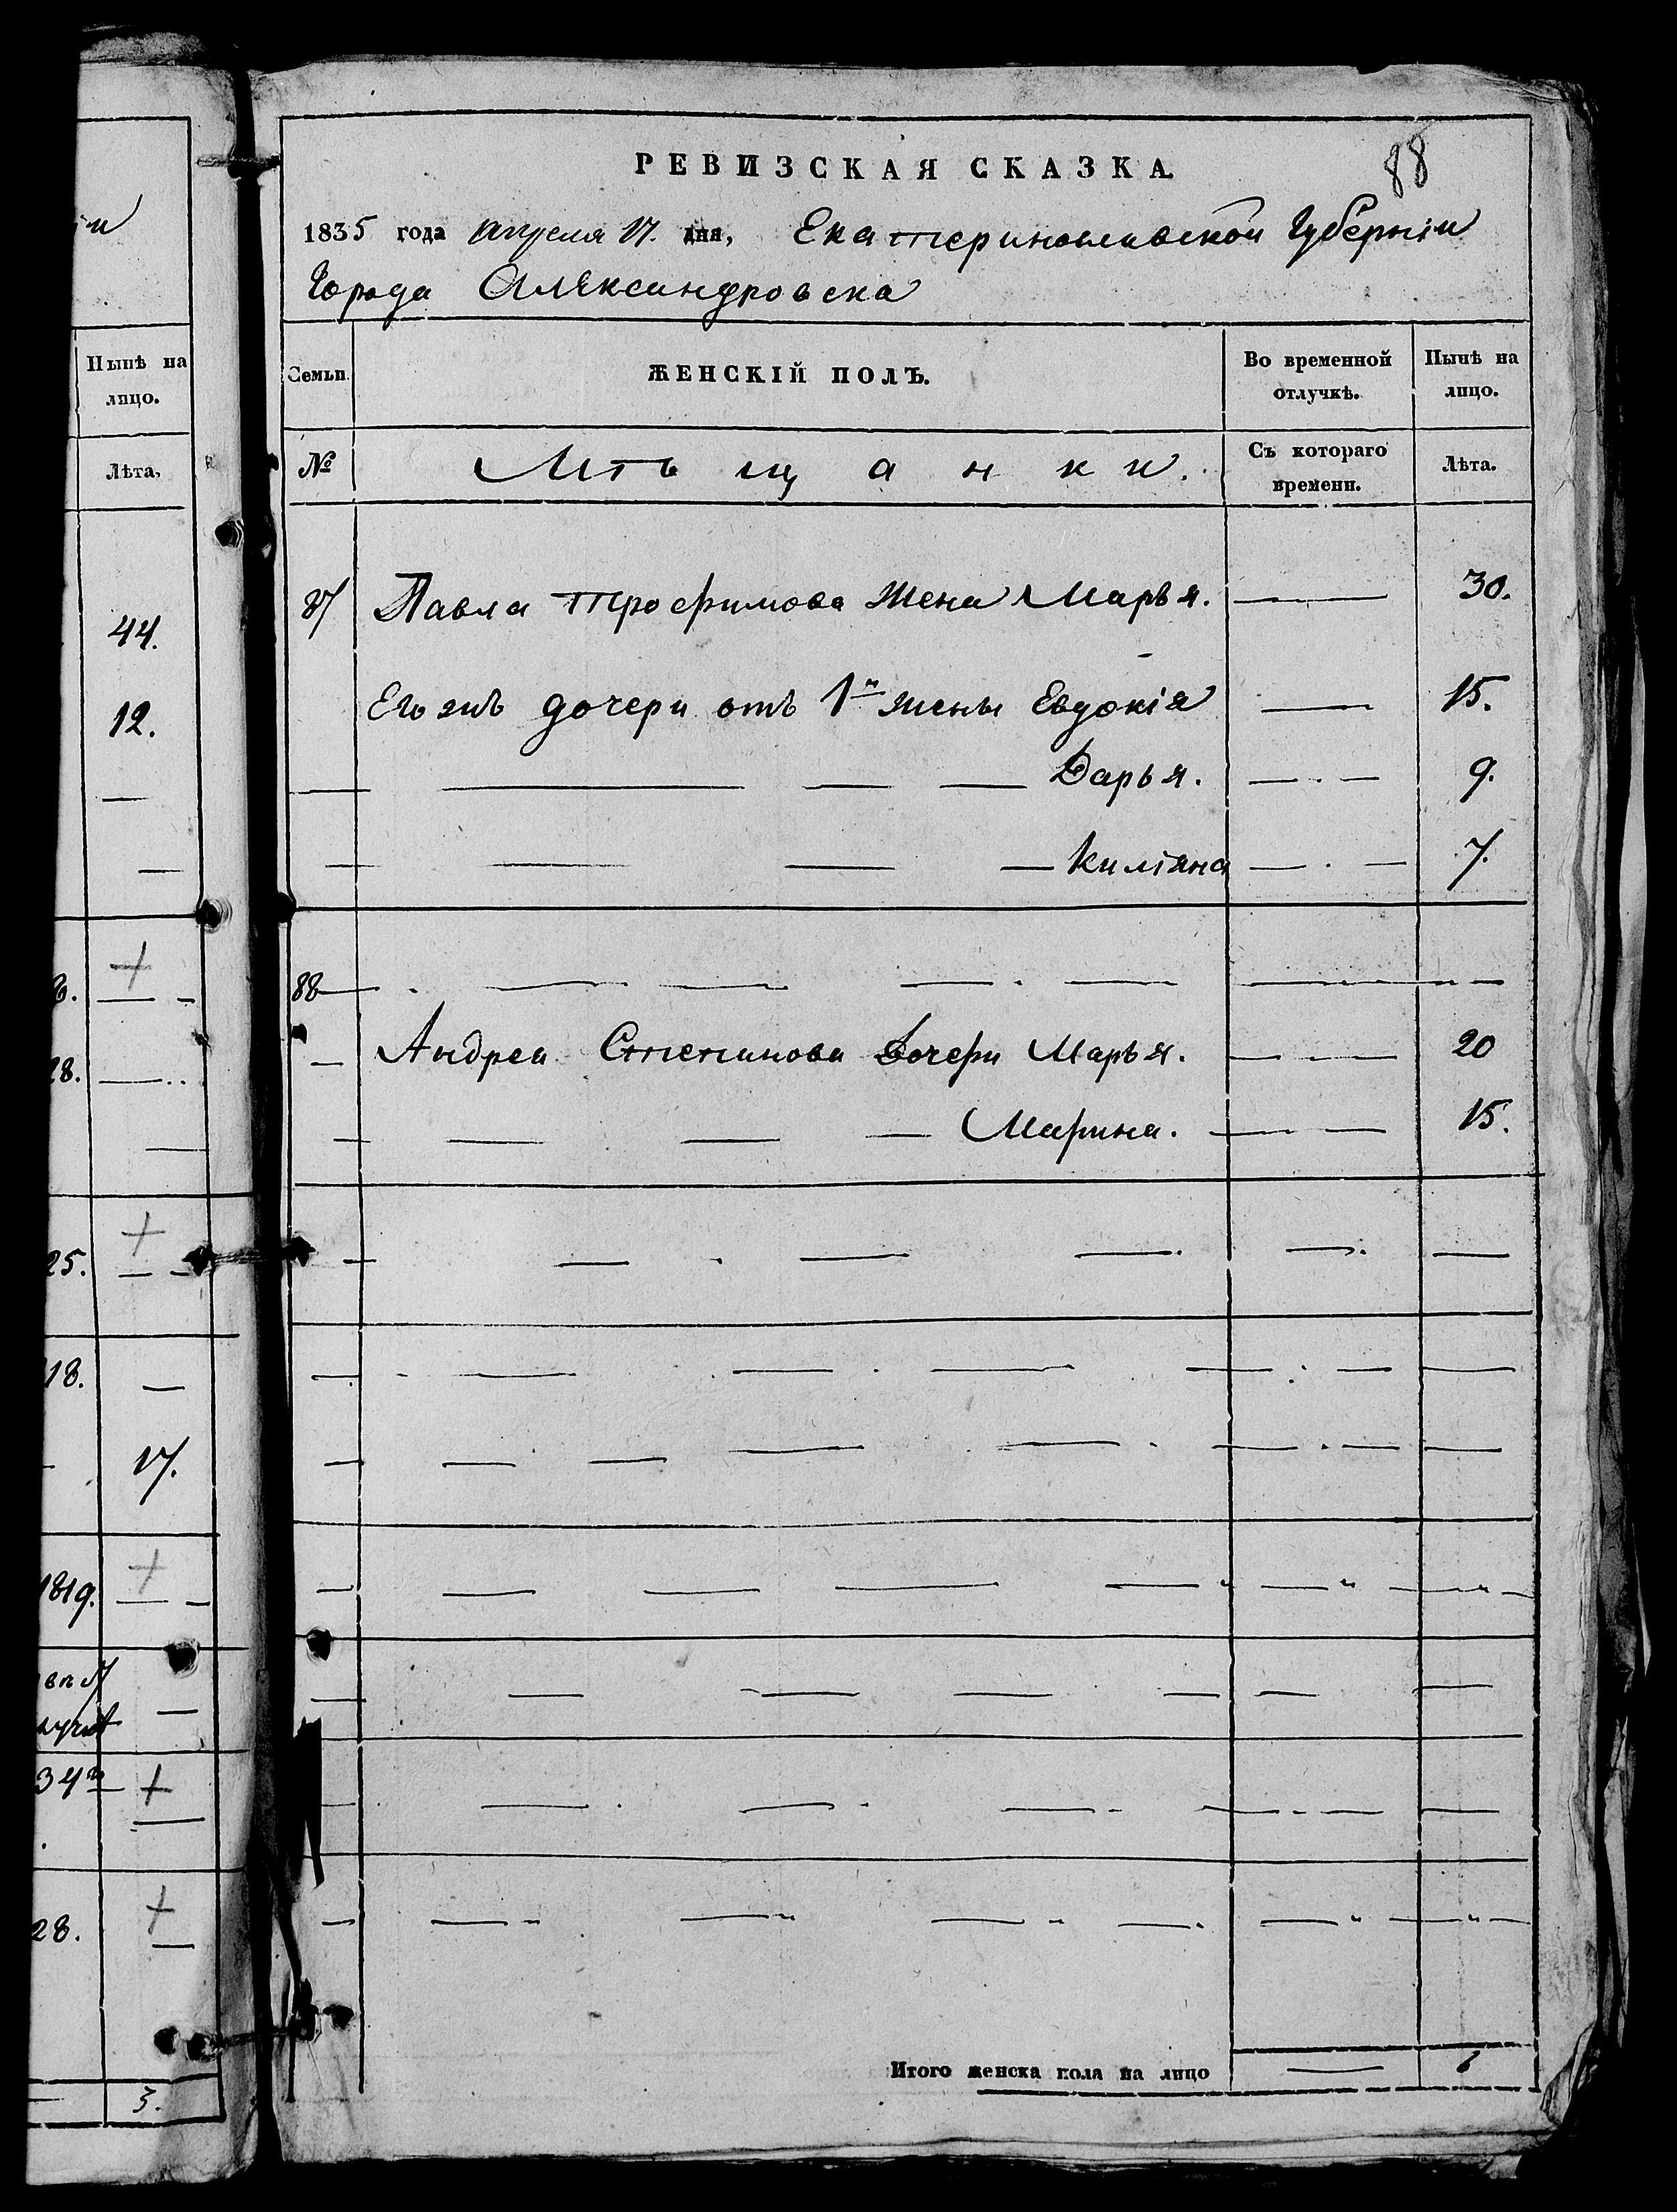 РЕВИЗСКАЯ СКАЗКА.
88
1835 года Апреля 17. дня, Екатеринославской Губерніи
Города Александровска
Семьи. ЖЕНСКІЙ ПОЛЪ. Во временной отлучкѣ. Нынѣ на лицо.
№ Мѣщанки. Съ котораго времени. Лѣта.
87 Павла Трофимова жена Марья. — 30.
Его жъ дочери отъ 1й жены Евдокія — 15.
— — — — Дарья. — 9.
— — — — Киліяна — 7.
88 — — — — — —
— Андрея Степанова дочери Марья. — 20
— — — — Марина. — 15.
Итого женска пола на лицо — 6
Нынѣ на
лицо.
Лѣта,
44.
12.
28.
25.
18.
17.
1819.
28.
3.